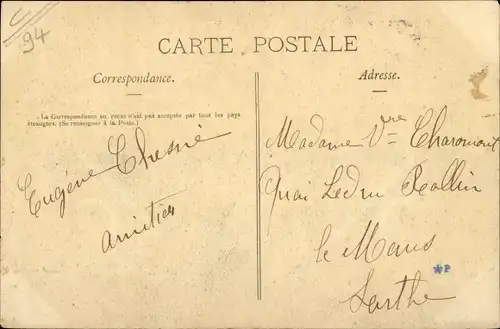 94
CARTE POSTALE
Correspondance.
Adresse.
La Correspondance au recto n'est pas acceptée par tous les pays
étrangers. (Se renseigner à la Poste.)
Eugène Chesné
amitiés
Madame Vve Charomont
Quai Ledru Rollin
le Mans
Sarthe
*P